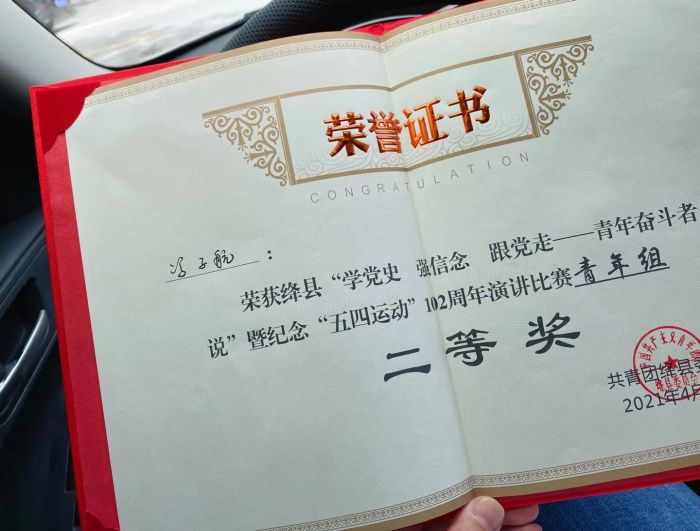 荣誉证书
CONGRATULATION
冯子航：
荣获绛县“学党史 强信念 跟党走——青年奋斗者
说”暨纪念“五四运动”102周年演讲比赛青年组
二等奖
共青团绛县委
2021年4月